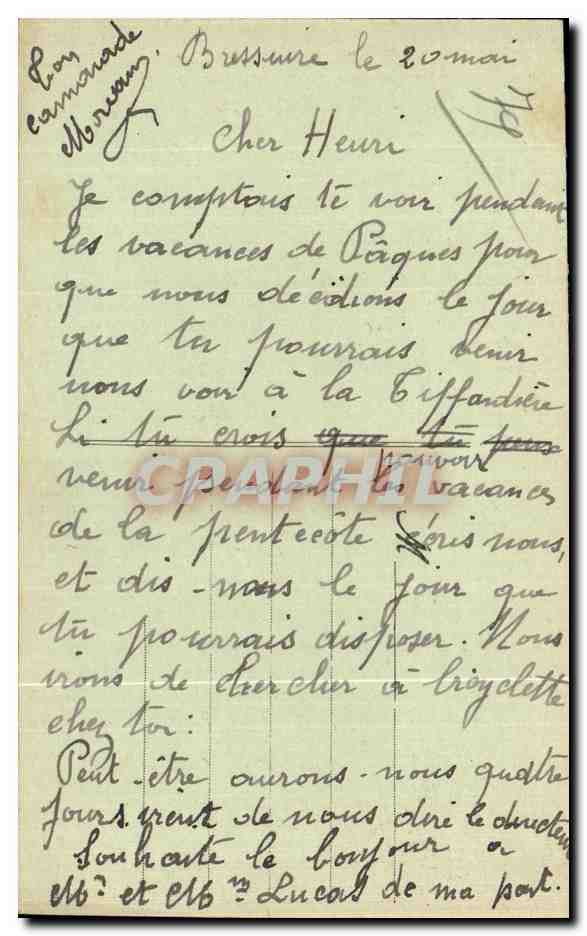 Bressuire le 20 mai
Cher Henri
Je comptais te voir pendant
les vacances de Pâques pour
que nous décidions le jour
que tu pourrais venir
nous voir à la Tiffardière
Si tu crois que tu peux
pouvoir
venir pendant les vacances
de la pentecôte écris nous,
et dis-nous le jour que
tu pourrais disposer. Nous
irons de chercher à bicyclette
chez toi:
Peut-être aurons-nous quatre
jours vient de nous dire le directeur
Souhaite le bonjour a
Mr et Mme Lucas de ma part.
Ton
camarade
CRAPHIL